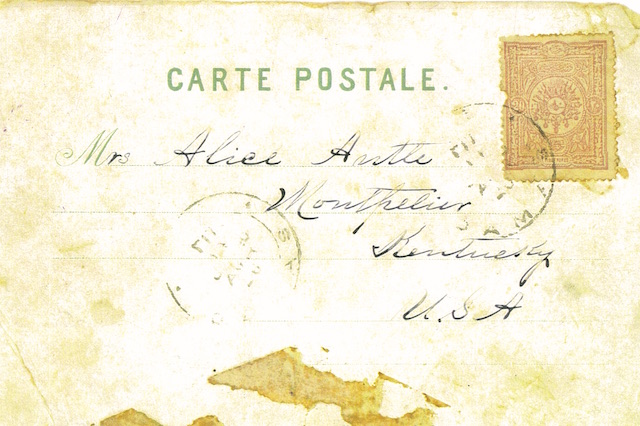 CARTE POSTALE.
Mrs Alice Antle
Montpelier
Kentucky
U.S.A